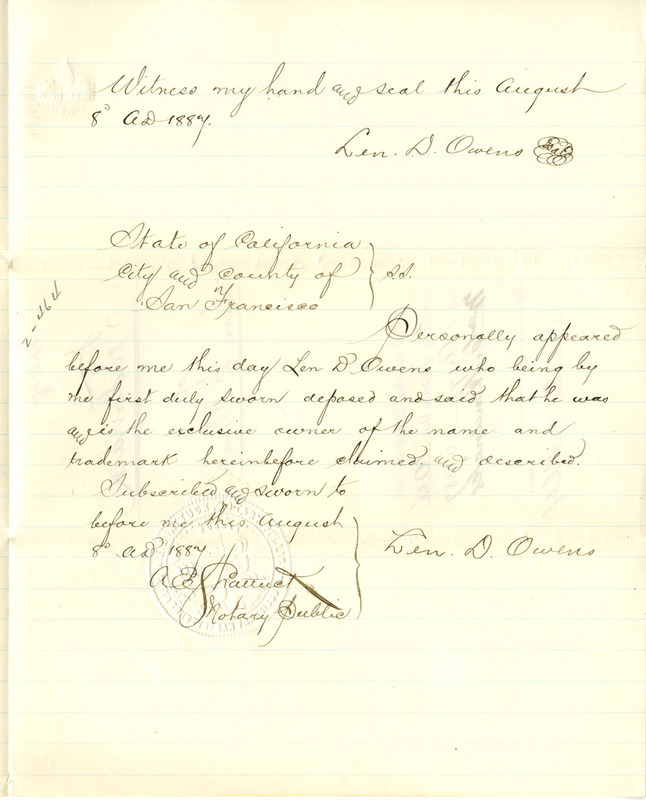 Witness my hand and seal this August
8° AD 1887.
Len. D. Owens Seal
State of California
City and County of
San Francisco
ss.
2-464
Personally appeared
before me this day Len D. Owens who being by
me first duly sworn deposed and said that he was
and is the exclusive owner of the name and
trademark hereinbefore claimed, and described.
Subscribed and sworn to
before me, this August
8° AD 1887.
Len. D. Owens
Notary Public